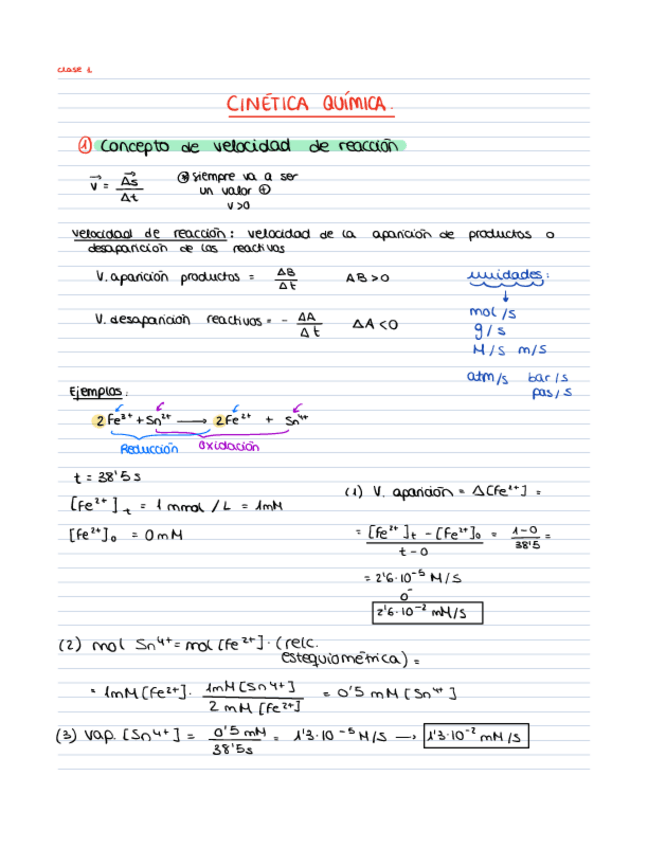 clase 1.
CINÉTICA QUÍMICA.
① Concepto de velocidad de reacción
v⃗ = Δs⃗ / Δt
⊛ siempre va a ser
un valor ⊕
v>0
velocidad de reacción: velocidad de la aparición de productos o
desaparición de los reactivos
V. aparición productos = ΔB / Δt   ΔB>0
unidades:
V. desaparición reactivos = - ΔA / Δt   ΔA<0
mol/s
g/s
M/s m/s
atm/s bar/s
pas/s
Ejemplos:
2Fe³⁺ + Sn²⁺ ⟶ 2Fe²⁺ + Sn⁴⁺
Reducción oxidación
t = 38'5 s
[Fe²⁺]t = 1 mmol / L = 1mM
[Fe²⁺]₀ = 0mM
(1) V. aparición = Δ[Fe²⁺] =
= [Fe²⁺]t - [Fe²⁺]₀ / t - 0 = 1-0 / 38'5 =
= 2'6·10⁻⁵ M/s
o
2'6·10⁻² mM/s
(2) mol Sn⁴⁺ = mol [Fe²⁺]·(relc.
estequiométrica) =
= 1mM[Fe²⁺]· 1mM[Sn4+] / 2 mM [Fe²⁺] = 0'5 mM [Sn⁴⁺]
(3) vap. [Sn4+] = 0'5 mM / 38'5s = 1'3·10⁻⁵ M/s ⟶ 1'3·10⁻² mM/s